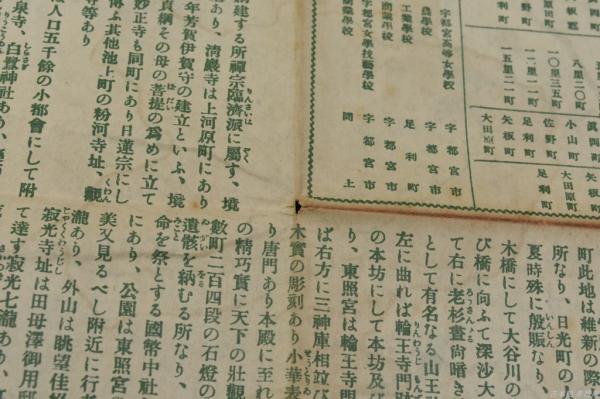 眞岡町
八里二〇町
小山町
一〇里三五町
佐野町
一二里一一町
足利町
一五里二一町
矢板町
大田原町
宇都宮高等女學校 宇都宮市
農學校 宇都宮市
工業學校 足利町
商業學校 宇都宮市
宇都宮女學技藝學校 宇都宮市
業學校 同上
建する所禪宗臨濟派に屬す、境
あり、清巖寺は上河原町にあり
年芳賀伊賀守の建立といふ、境
貞綱その母の菩提の爲めに立て
妙正寺も同町にあり日蓮宗にし
傳ふ其他池上町の粉河寺址、觀
等あり
人口五千餘の小都會にして附
泉寺、白鷺神社あり、
町此地は維新の際
所なり、日光町の
夏時殊に殷賑なり、
木橋にして大谷川の
び橋に向ふて深沙大
て右に老杉晝尚暗き
として有名なる山王
左に曲れば輪王寺門跡
の本坊にして本坊及
り、東照宮は輪王寺門
ば右方に三神庫相竝び
木實の彫刻あり小華表
り唐門あり本殿に至れ
の精巧實に天下の壯觀
數町二百四段の石燈の
遺骸を納むる所なり、
命を祭とする國幣中社
にあり、公園は東照宮
美又見るべし附近に行者
瀧あり、外山は眺望佳
寂光寺址は田母澤御用邸
て達す寂光七瀧あり、